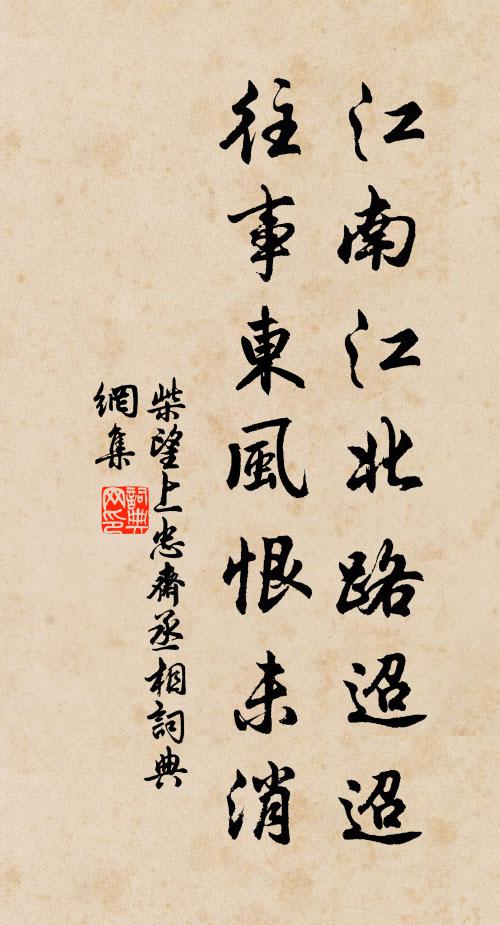 江南江北路迢迢
往事東風恨未消
柴望上忠齋丞相詞典
網集
詞典
网印